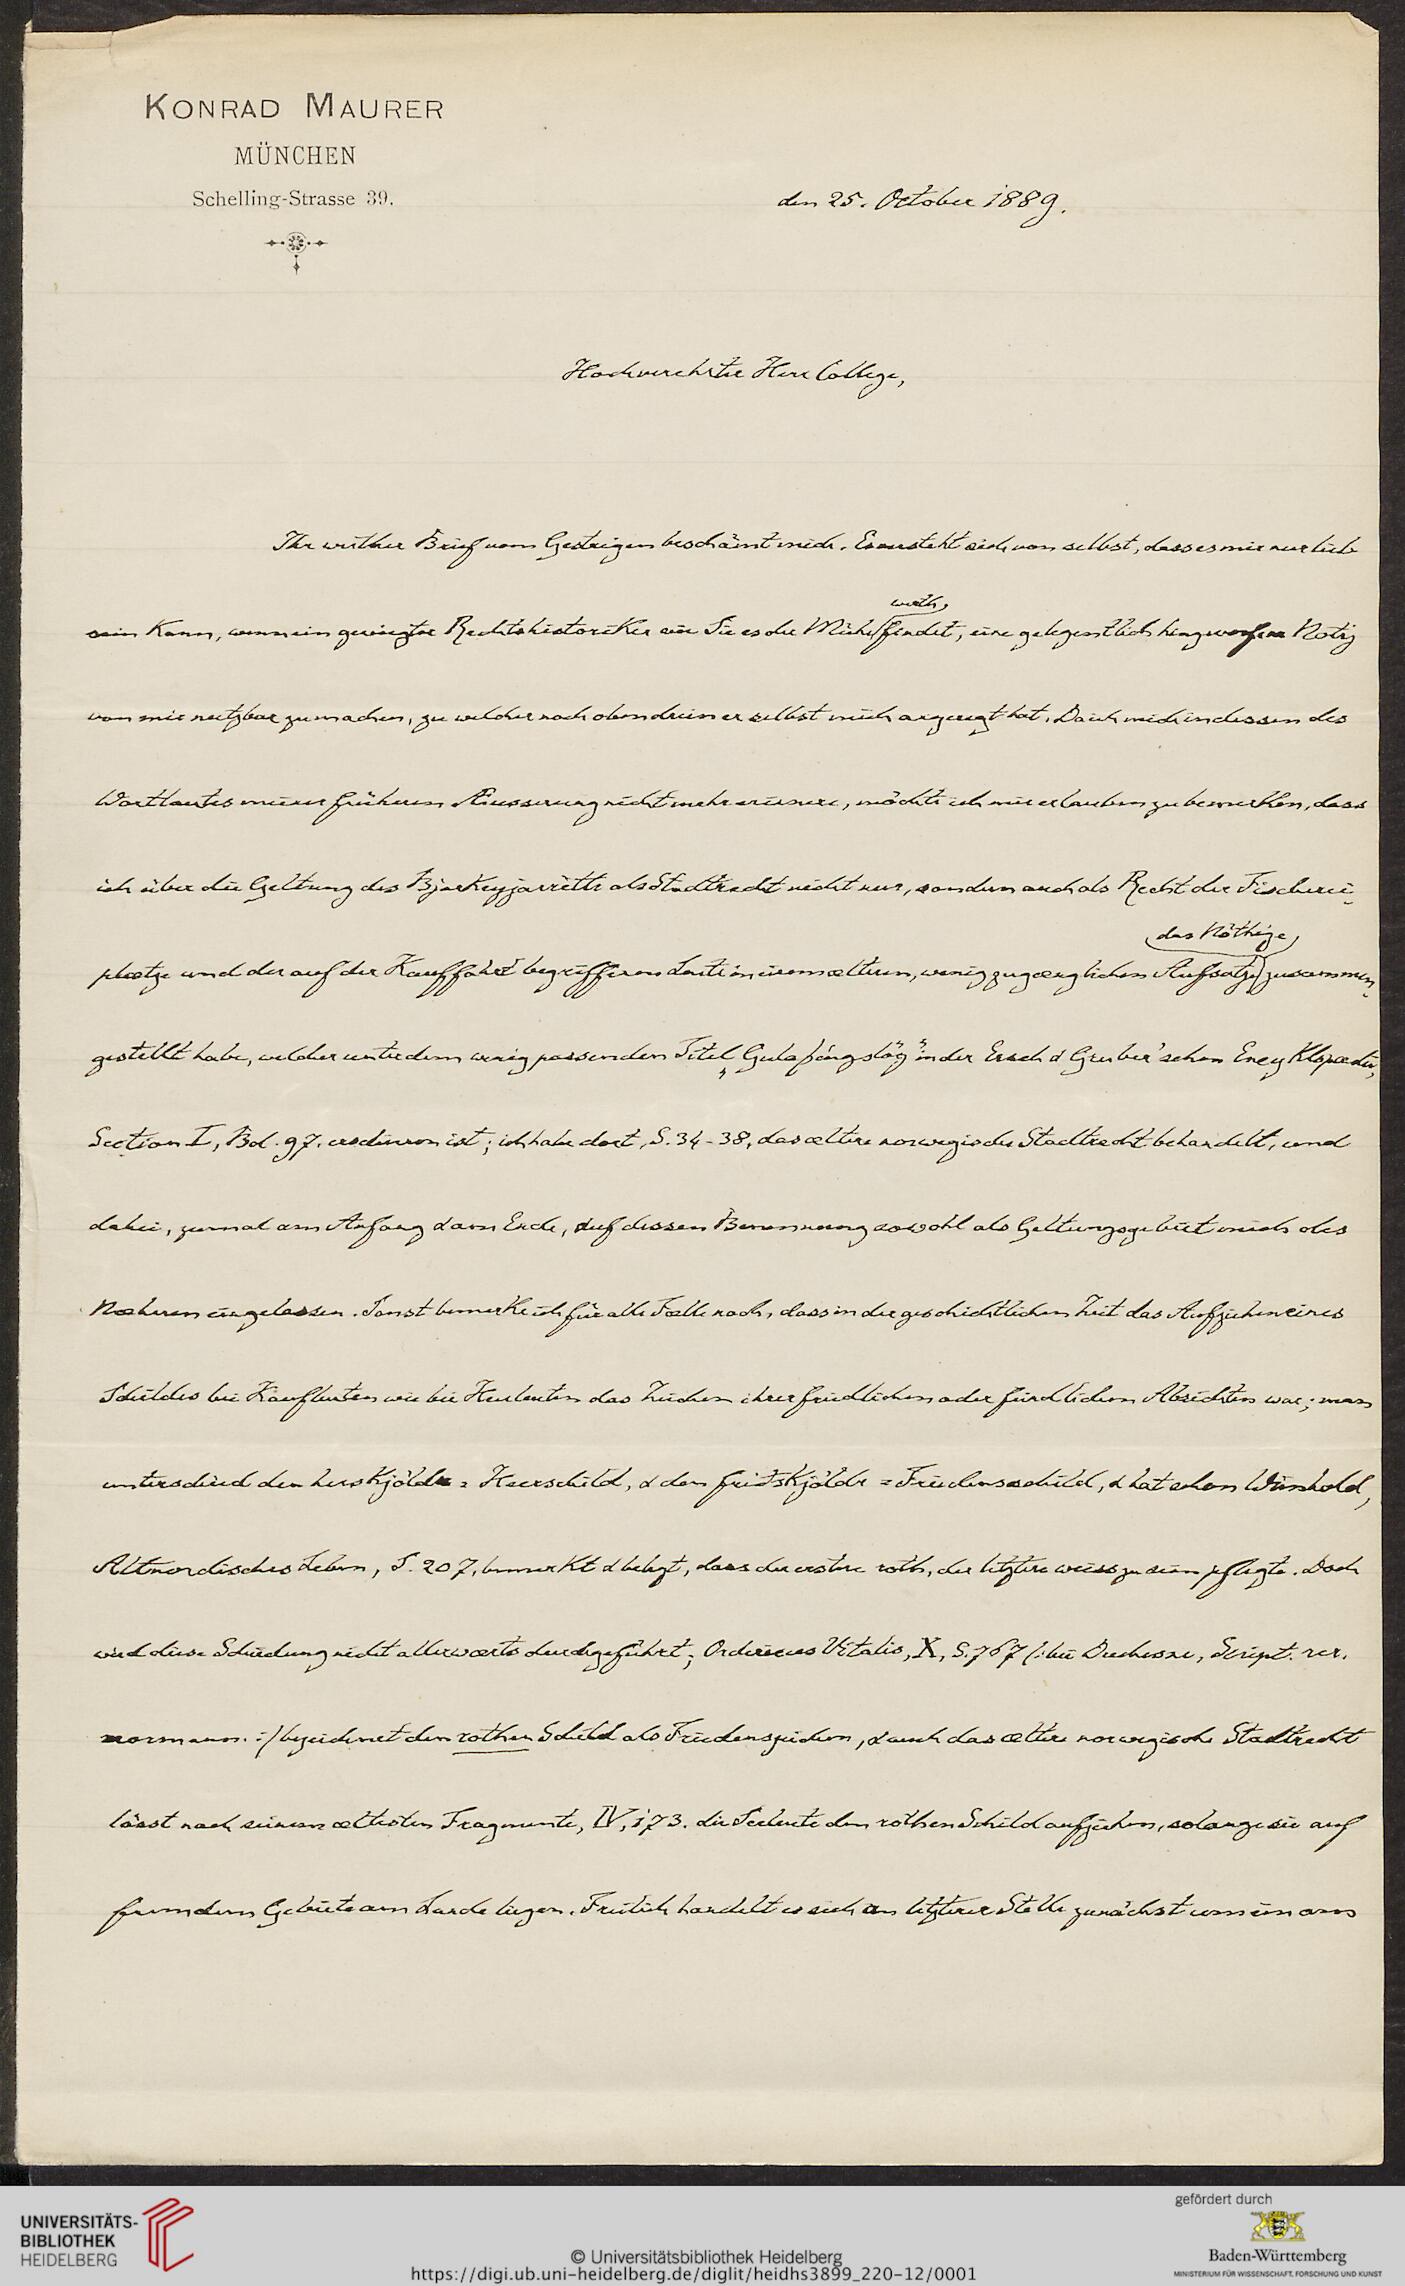 KONRAD MAURER
MÜNCHEN
Schelling-Strasse 39.
den 25. October 1889.
Hochverehrter Herr College,
Ihr werther Brief vom Gestrigen beschämt mich. Es versteht sich von selbst, dass es mir nur lieb
werth,
sein kann, wenn ein gewiegter Rechtshistoriker wie Sie es der Mühe findet, eine gelegentlich hingeworfene Notiz
von mir nutzbar zu machen, zu welcher noch obendrein er selbst mich angeregt hat. Da ich mich indessen des
Wortlautes meiner früheren Äusserung nicht mehr erinnere, möchte ich mir erlauben zu bemerken, dass
ich über die Geltung des Bjarkeyjarréttr als Stadtrecht nicht nur, sondern auch als Recht der Fischerei-
das Nöthige
plætze und der auf der Kauffahrt begriffenen Leute in einem ælteren, wenig zugænglichen Aufsatze zusammen-
gestellt habe, welcher unter dem wenig passenden Titel „Gulaþingslög" in der Ersch & Gruber'schen Encyklopædie,
Section I, Bd. 97. erschienen ist; ich habe dort, S. 34-38, das æltere norwegische Stadtrecht behandelt, und
dabei, zumal am Anfang & am Ende, auf dessen Benennung sowohl als Geltungsgebiet mich des
Næheren eingelassen. Sonst bemerke ich für alle Fælle noch, dass in der geschichtlichen Zeit das Aufziehen eines
Schildes bei Kaufleuten wie bei Heerleuten das Zeichen ihrer friedlichen oder feindlichen Absichten war; man
unterschied den herskjöldr = Heerschild, & den friðskjöldr = Friedensschild, & hat schon Weinhold,
Altnordisches Leben, S. 207, bemerkt & belegt, dass der erstere roth, der letztere weiss zu sein pflegte. Doch
wird diese Scheidung nicht allerwærts durchgeführt; Ordericus Vitalis, X, S. 767 /: bei Duchesne, Script. rer.
normann. :/ bezeichnet den rothen Schild als Friedenszeichen, & auch das æltere norwegische Stadtrecht
lässt nach seinem æltesten Fragmente, IV, 173. die Seeleute den rothen Schild aufziehen, solange sie auf
fremdem Gebiete am Lande liegen. Freilich handelt es sich an letzterer Stelle zunächst um ein am
UNIVERSITÄTS-
BIBLIOTHEK
HEIDELBERG
© Universitätsbibliothek Heidelberg
https://digi.ub.uni-heidelberg.de/diglit/heidhs3899_220-12/0001
gefördert durch
Baden-Württemberg
MINISTERIUM FÜR WISSENSCHAFT, FORSCHUNG UND KUNST